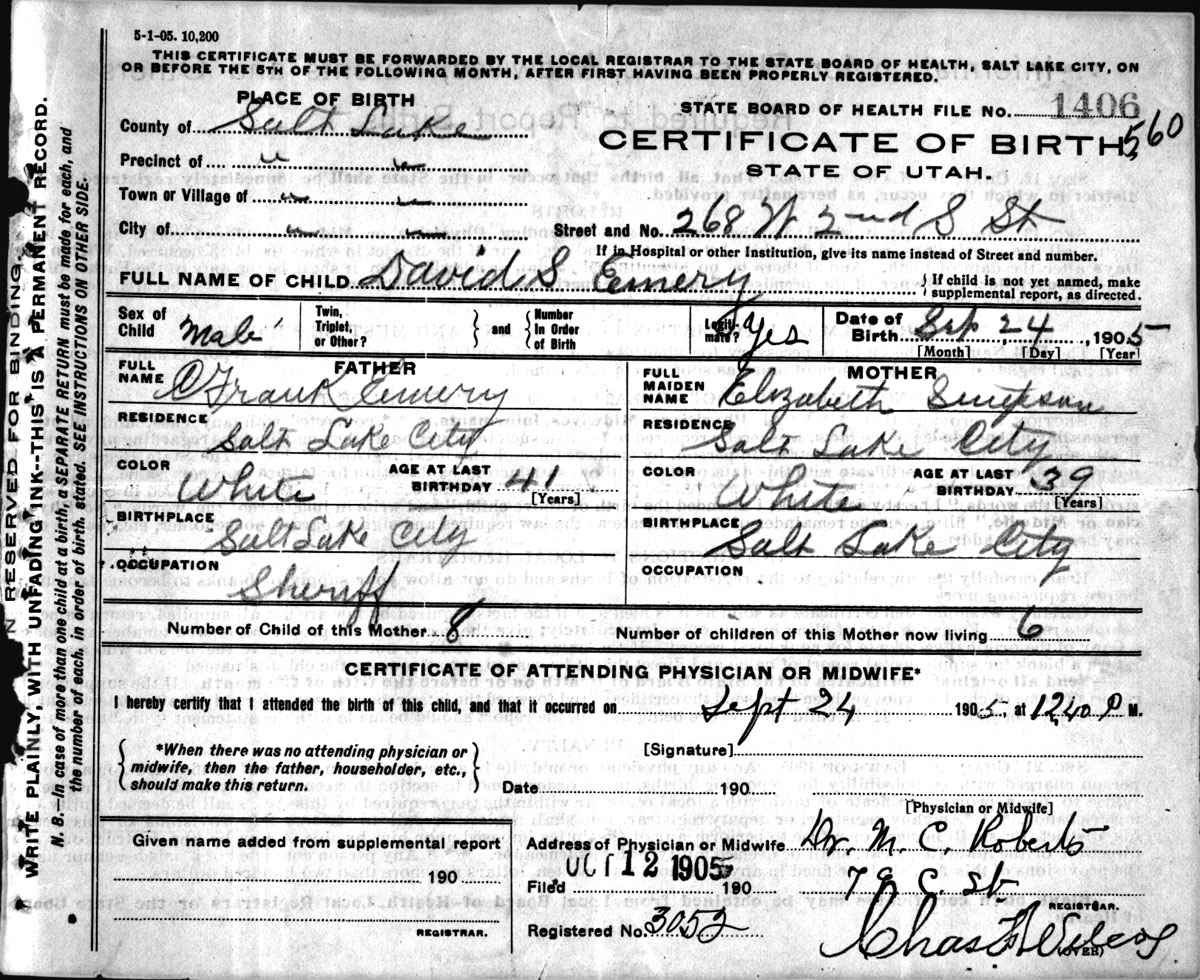 5-1-05. 10,200
THIS CERTIFICATE MUST BE FORWARDED BY THE LOCAL REGISTRAR TO THE STATE BOARD OF HEALTH, SALT LAKE CITY, ON
OR BEFORE THE 5TH OF THE FOLLOWING MONTH, AFTER FIRST HAVING BEEN PROPERLY REGISTERED.
PLACE OF BIRTH
STATE BOARD OF HEALTH FILE No. 1406
560
County of Salt Lake
CERTIFICATE OF BIRTH
STATE OF UTAH.
Precinct of " "
Town or Village of " "
City of " "
Street and No. 268 W 2nd S St
If in Hospital or other Institution, give its name instead of Street and number.
FULL NAME OF CHILD David S Emery
If child is not yet named, make
supplemental report, as directed.
Sex of Child Male
Twin, Triplet, or Other?
and
Number In Order of Birth
Legiti-mate? Yes
Date of Birth Sep 24 1905
[Month] [Day] [Year]
FATHER
FULL NAME C Frank Emery
RESIDENCE Salt Lake City
COLOR White
AGE AT LAST BIRTHDAY 41
[Years]
BIRTHPLACE Salt Lake City
OCCUPATION Sheriff
MOTHER
FULL MAIDEN NAME Elizabeth Simpson
RESIDENCE Salt Lake City
COLOR White
AGE AT LAST BIRTHDAY 39
[Years]
BIRTHPLACE Salt Lake City
OCCUPATION
Number of Child of this Mother 8
Number of children of this Mother now living 6
CERTIFICATE OF ATTENDING PHYSICIAN OR MIDWIFE*
I hereby certify that I attended the birth of this child, and that it occurred on Sept 24 1905, at 1240 P M.
*When there was no attending physician or
midwife, then the father, householder, etc.,
should make this return.
[Signature]
Date 190
[Physician or Midwife]
Given name added from supplemental report
190
REGISTRAR.
Address of Physician or Midwife Dr. M. C. Roberts
Filed OCT 12 1905 190
78 C. St
REGISTRAR.
Registered No. 3052
Chas
(OVER)
N RESERVED FOR BINDING
WRITE PLAINLY, WITH UNFADING INK--THIS IS A PERMANENT RECORD.
N. B.--In case of more than one child at a birth, a SEPARATE RETURN must be made for each, and
the number of each, in order of birth, stated. SEE INSTRUCTIONS ON OTHER SIDE.